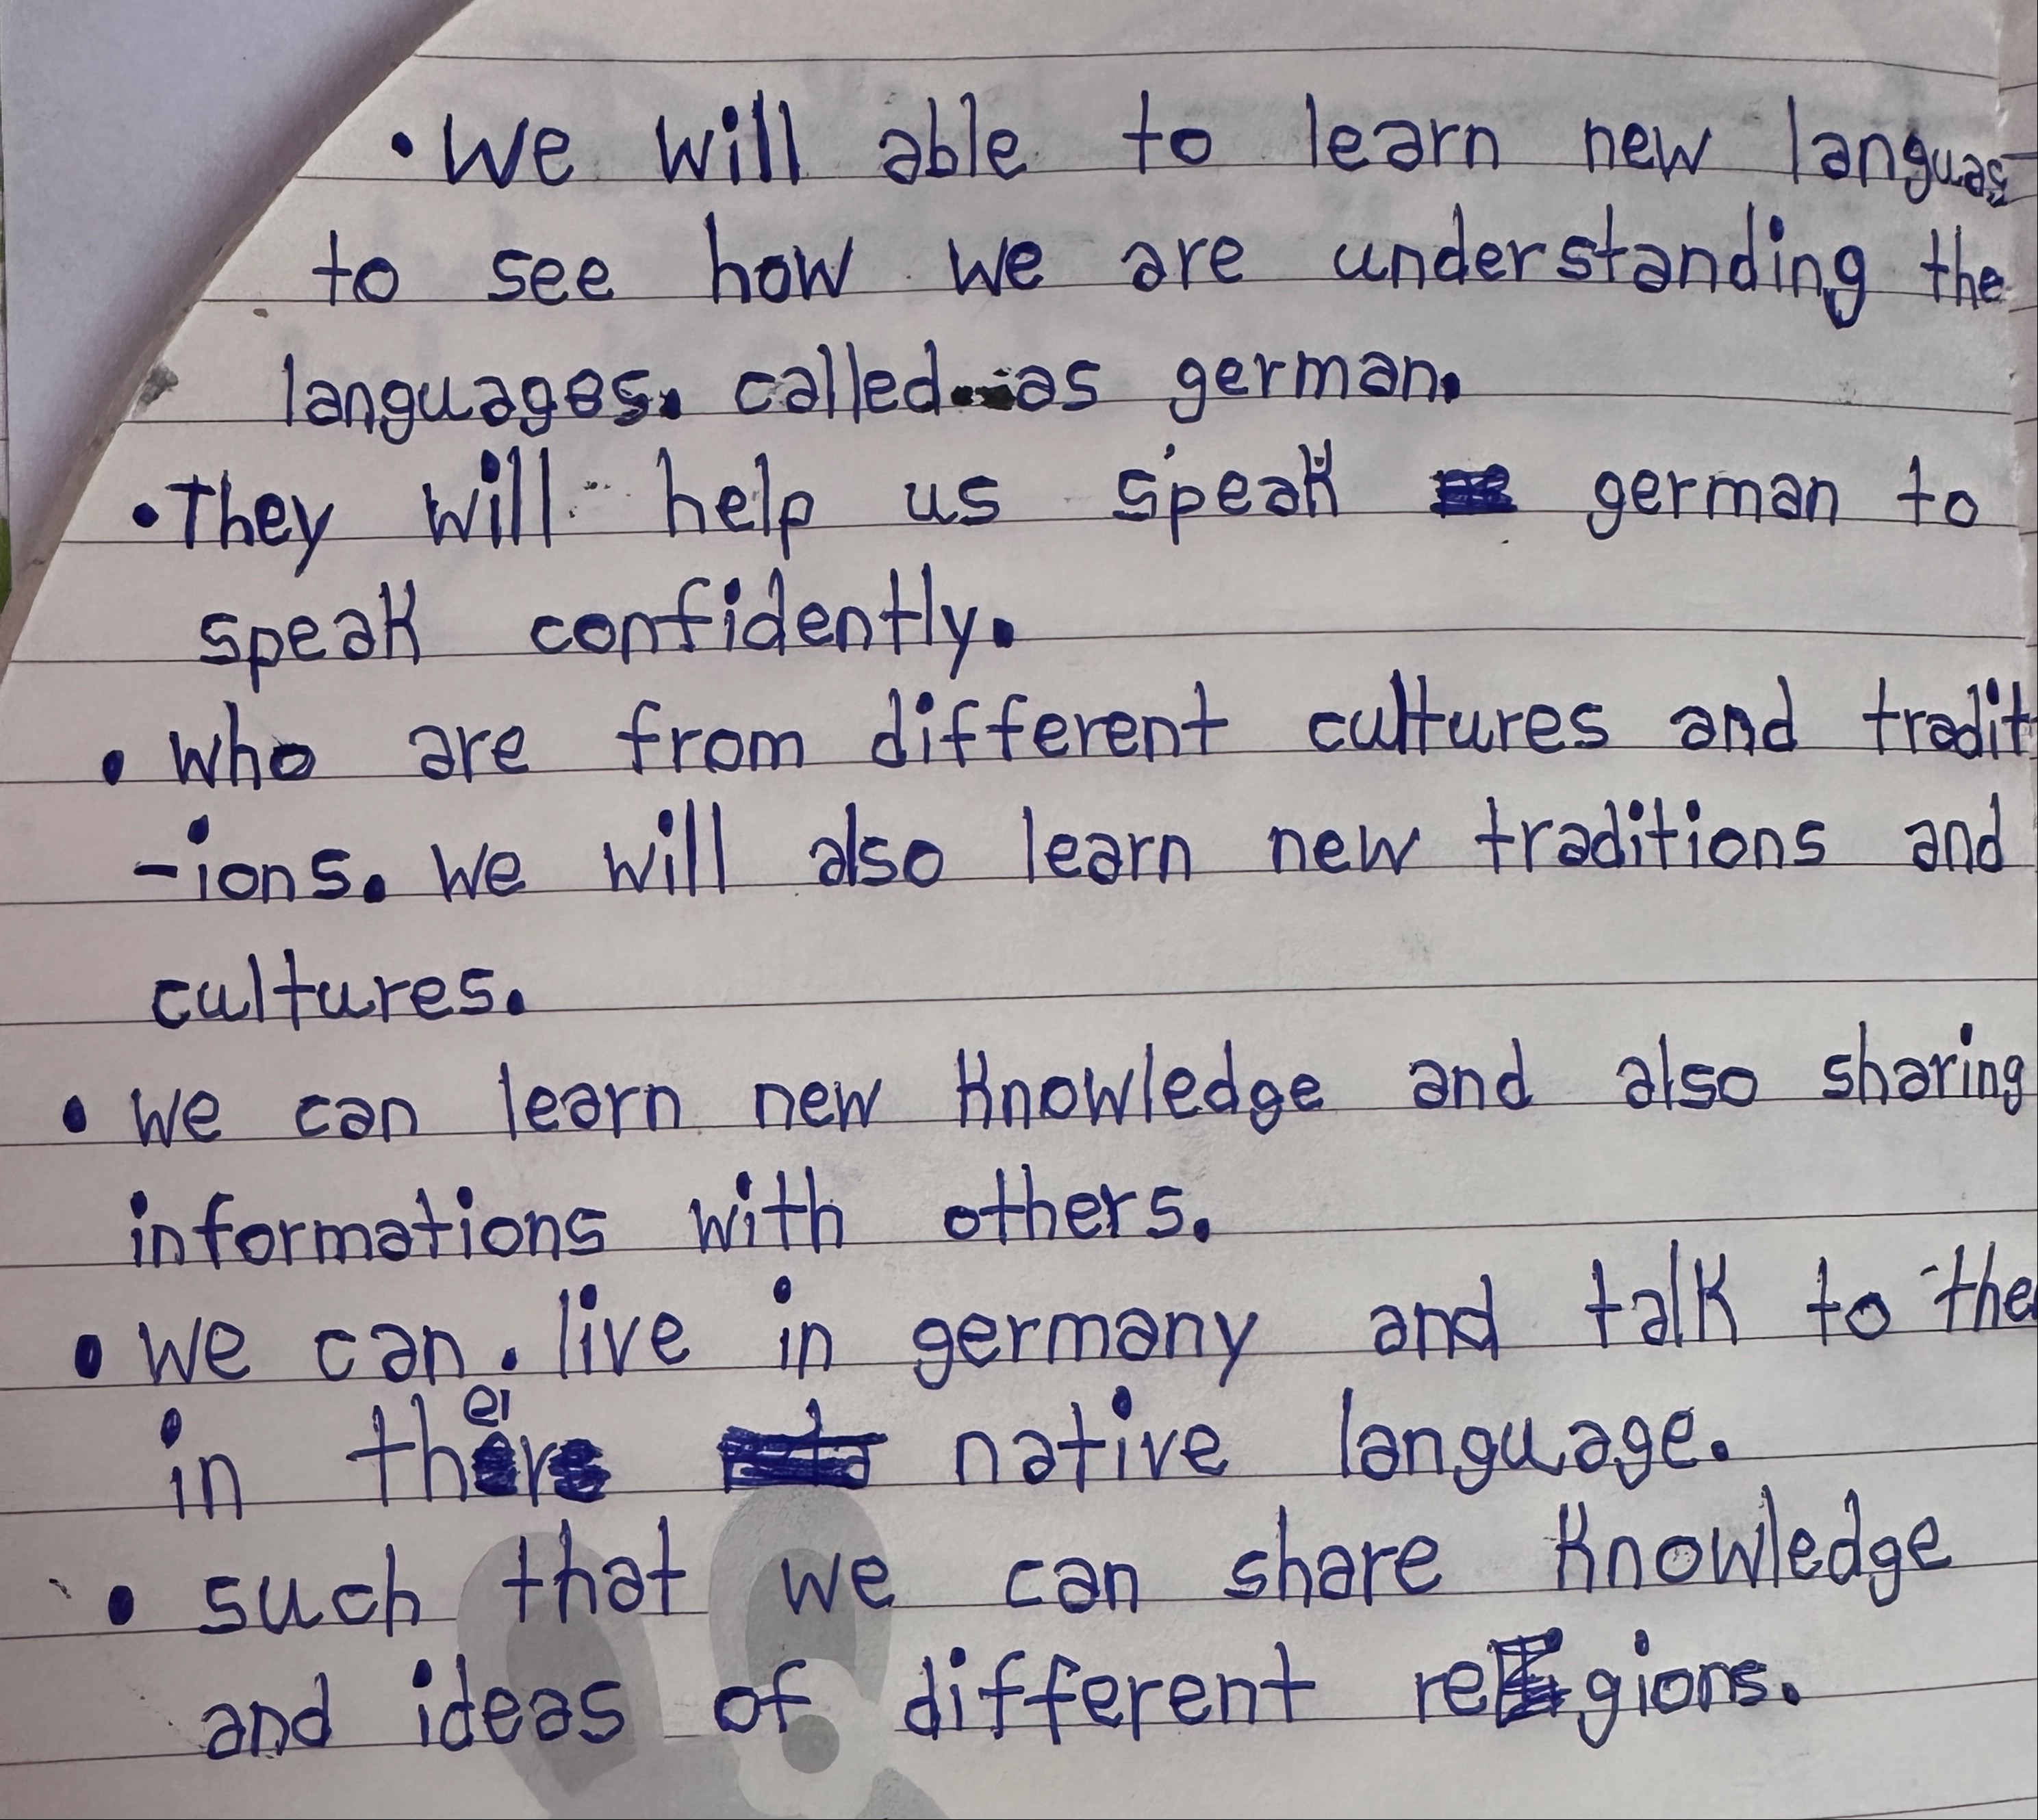 • We will able to learn new languag
to see how we are understanding the
languages. called as german.
• They will help us speak german to
speak confidently.
• who are from different cultures and tradit
-ions. We will also learn new traditions and
cultures.
• We can learn new knowledge and also sharing
informations with others.
• We can. live in germany and talk to the
in their native language.
• such that we can share knowledge
and ideas of different regions.